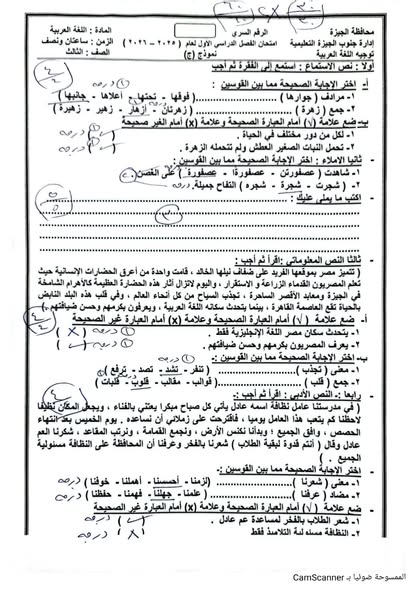 محافظة الجيزة
الرقم السري
المادة : اللغة العربية
إدارة جنوب الجيزة التعليمية
امتحان الفصل الدراسي الأول لعام ( ٢٠٢٥ – ٢٠٢٦ )
الزمن : ساعتان ونصف
توجيه اللغة العربية
نموذج (ج)
الصف : الثالث
أولا : نص الاستماع : استمع إلى الفقرة ثم أجب
أ- اختر الإجابة الصحيحة مما بين القوسين :
١- مرادف ( جوارها ) ............ ( فوقها – تحتها – أعلاها – جانبها )
٢- جمع ( زهرة ) ............ ( زهرتان – أزهار – زهير – زهيرة )
ب- ضع علامة (√) أمام العبارة الصحيحة وعلامة (x) أمام الغير صحيحة
١- لكل من دور مختلف في الحياة .
٢- تحمل النبات الصغير العطش ولم تتحمله الزهرة .
ثانيا الاملاء : اختر الإجابة الصحيحة مما بين القوسين :
١- شاهدت ( عصفورتن – عصفورة – عصفورة ) على الغصن
٢- ( شجرت – شجرة – شجره ) التفاح جميلة.
اكتب ما يملى عليك :
ثالثا النص المعلوماتي : اقرأ ثم أجب :
( تتميز مصر بموقعها الفريد على ضفاف نيلها الخالد ، قامت واحدة من أعرق الحضارات الإنسانية حيث
تعلم المصريون القدماء الزراعة و الاستقرار ، واليوم لاتزال آثار هذه الحضارة العظيمة كالأهرام الشامخة
في الجيزة ومعابد الأقصر الساحرة ، تجذب السياح من كل أنحاء العالم ، وفي قلب هذه البلد النابض
بالحياة تقع العاصمة القاهرة ، بينما يتحدث سكانه اللغة العربية ، ويعرفون بكرمهم وحسن ضيافتهم . )
أ- ضع علامة (√) أمام العبارة الصحيحة وعلامة (x) أمام العبارة غير الصحيحة
١- يتحدث سكان مصر اللغة الإنجليزية فقط .
٢- يعرف المصريون بكرمهم وحسن ضيافتهم .
ب- اختر الإجابة الصحيحة مما بين القوسين :
١- معنى ( تجذب ) ............ ( تنفر – تشد – تصد – ترفع )
٢- جمع ( قلب ) ............ ( قوالب – مقالب – قلوب – قلبات )
رابعا : النص الأدبي : اقرأ ثم أجب :
( في مدرستنا عامل نظافة اسمه عادل يأتي كل صباح مبكرا يعتني بالفناء ، ويجعل المكان نظيفا
لاحظنا كم يتعب هذا العامل يوميا ، فاقترحت على زملائي أن نساعده . يوم الخميس بعد انتهاء
الحصص ، وافق الجميع ؛ وبدأنا نكنس الأرض ، ونجمع القمامة ، ونرتب المقاعد ، شكرنا العم
عادل وقال ( أنتم قدوة لبقية الطلاب ) شعرنا بالفخر وعرفنا أن المحافظة على النظافة مسئولية
الجميع . )
اختر الإجابة الصحيحة مما بين القوسين :
١- معنى ( شعرنا ) ............ ( لزمنا – أحسسنا – أهملنا – خوفنا )
٢- مضاد ( عرفنا ) ............ ( علمنا – جهلنا – فهمنا – حفظنا )
ضع علامة (√) أمام العبارة الصحيحة وعلامة (x) أمام العبارة غير الصحيحة
١- شعر الطلاب بالفخر لمساعدة عم عادل .
٢- النظافة مسئولية التلاميذ فقط
الممسوحة ضوئيا بـ CamScanner